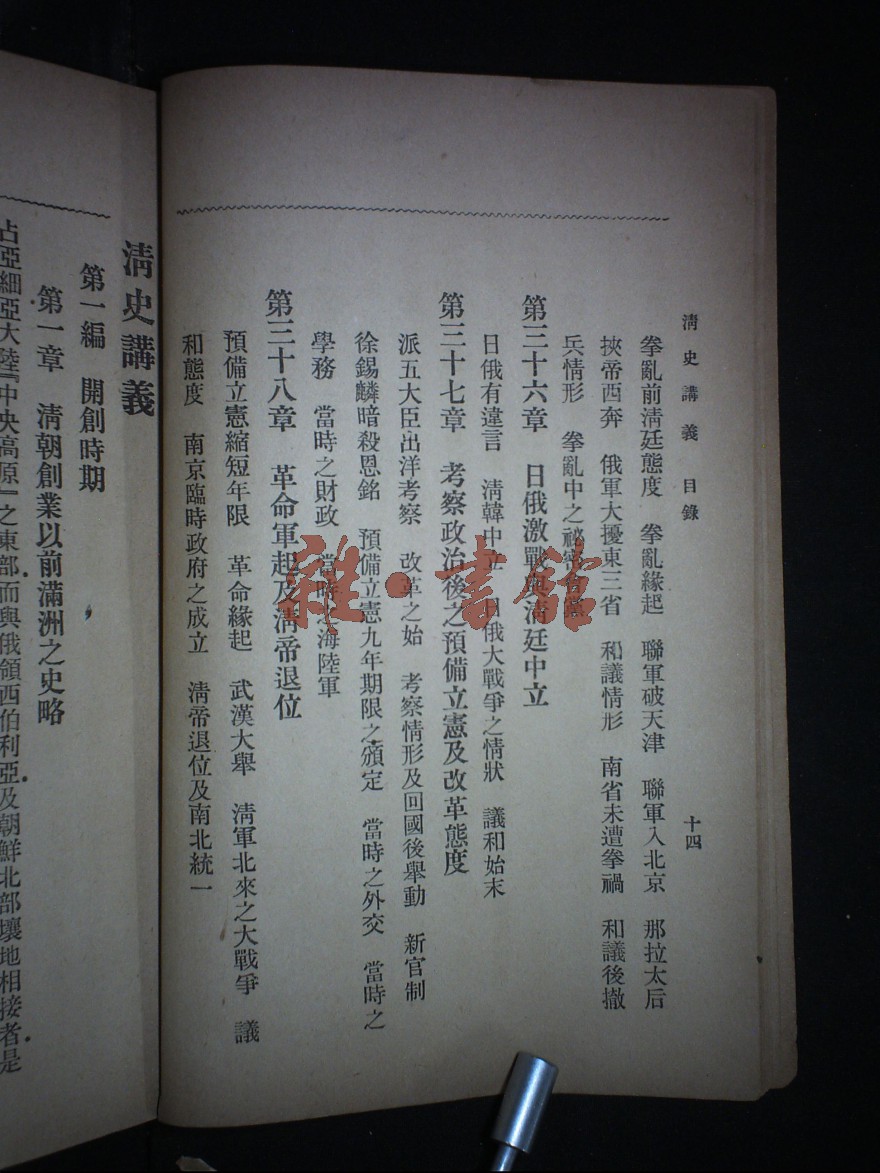 清史講義 目錄 十四
拳亂前清廷態度 拳亂緣起 聯軍破天津 聯軍入北京 那拉太后
挾帝西奔 俄軍大擾東三省 和議情形 南省未遭拳禍 和議後撤
兵情形 拳亂中之祕密會黨
第三十六章 日俄激戰與清廷中立
日俄有違言 清韓中立 日俄大戰爭之情狀 議和始末
第三十七章 考察政治後之預備立憲及改革態度
派五大臣出洋考察 改革之始 考察情形及回國後舉動 新官制
徐錫麟暗殺恩銘 預備立憲九年期限之頒定 當時之外交 當時之
學務 當時之財政 當時之海陸軍
第三十八章 革命軍起及清帝退位
預備立憲縮短年限 革命緣起 武漢大舉 清軍北來之大戰爭 議
和態度 南京臨時政府之成立 清帝退位及南北統一
清史講義
第一編 開創時期
第一章 清朝創業以前滿洲之史略
占亞細亞大陸『中央高原』之東部而與俄領西伯利亞及朝鮮北部壤地相接者是
雜·書館